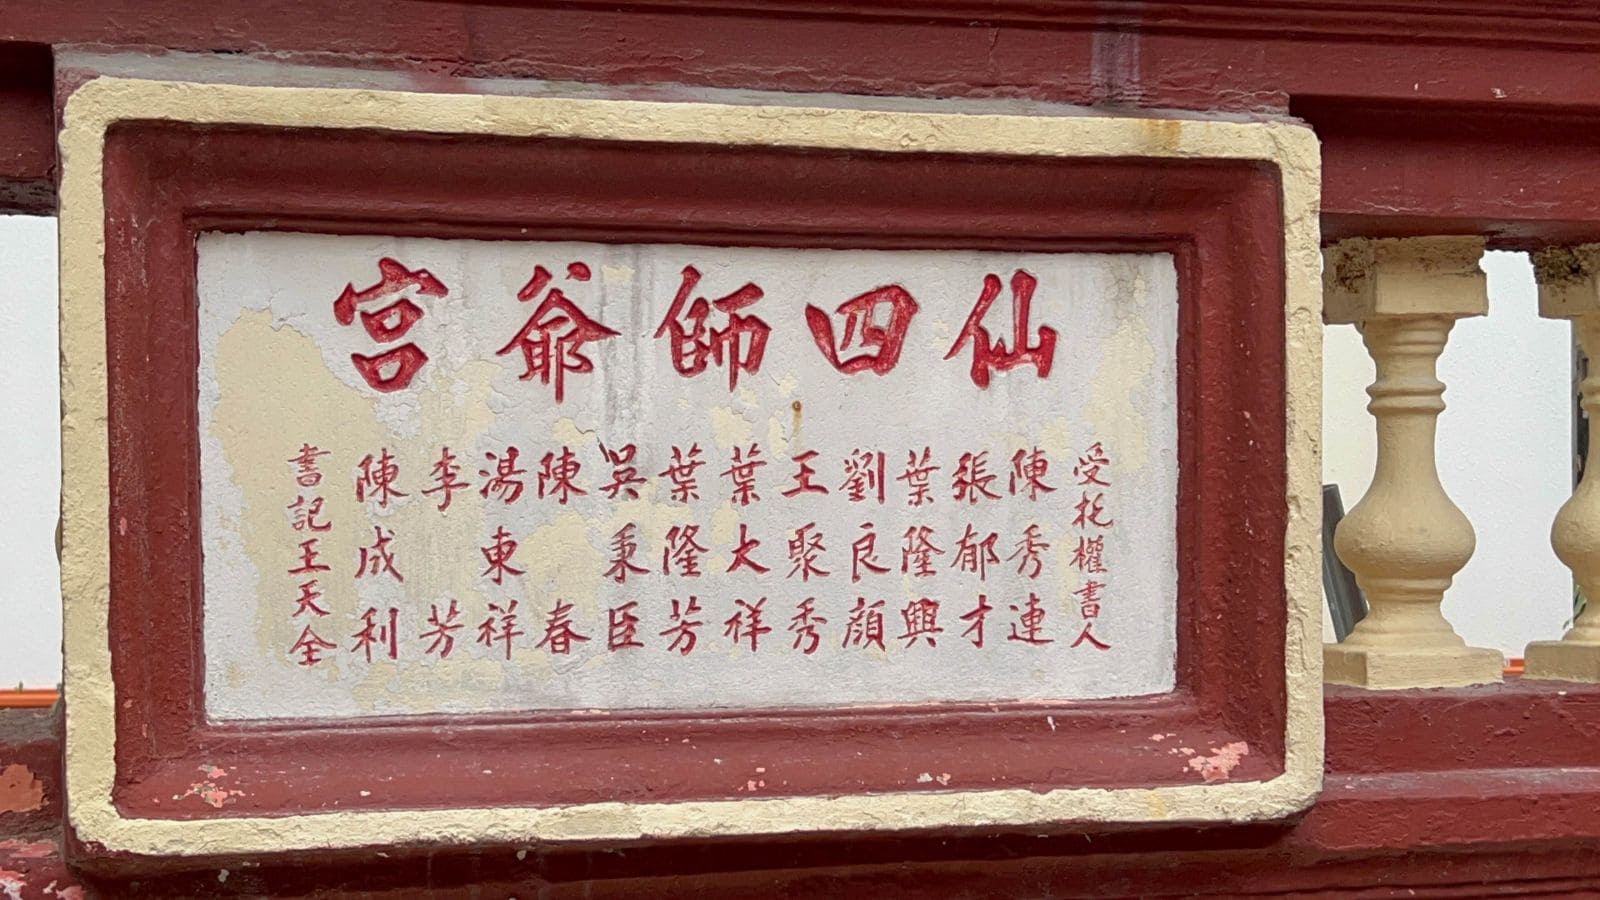 仙四師爺宮
受托權書人
陳秀連
張郁才
葉隆興
劉良顔
王聚秀
葉大祥
葉隆芳
吳秉臣
陳春
湯東祥
李芳
陳成利
書記王天全